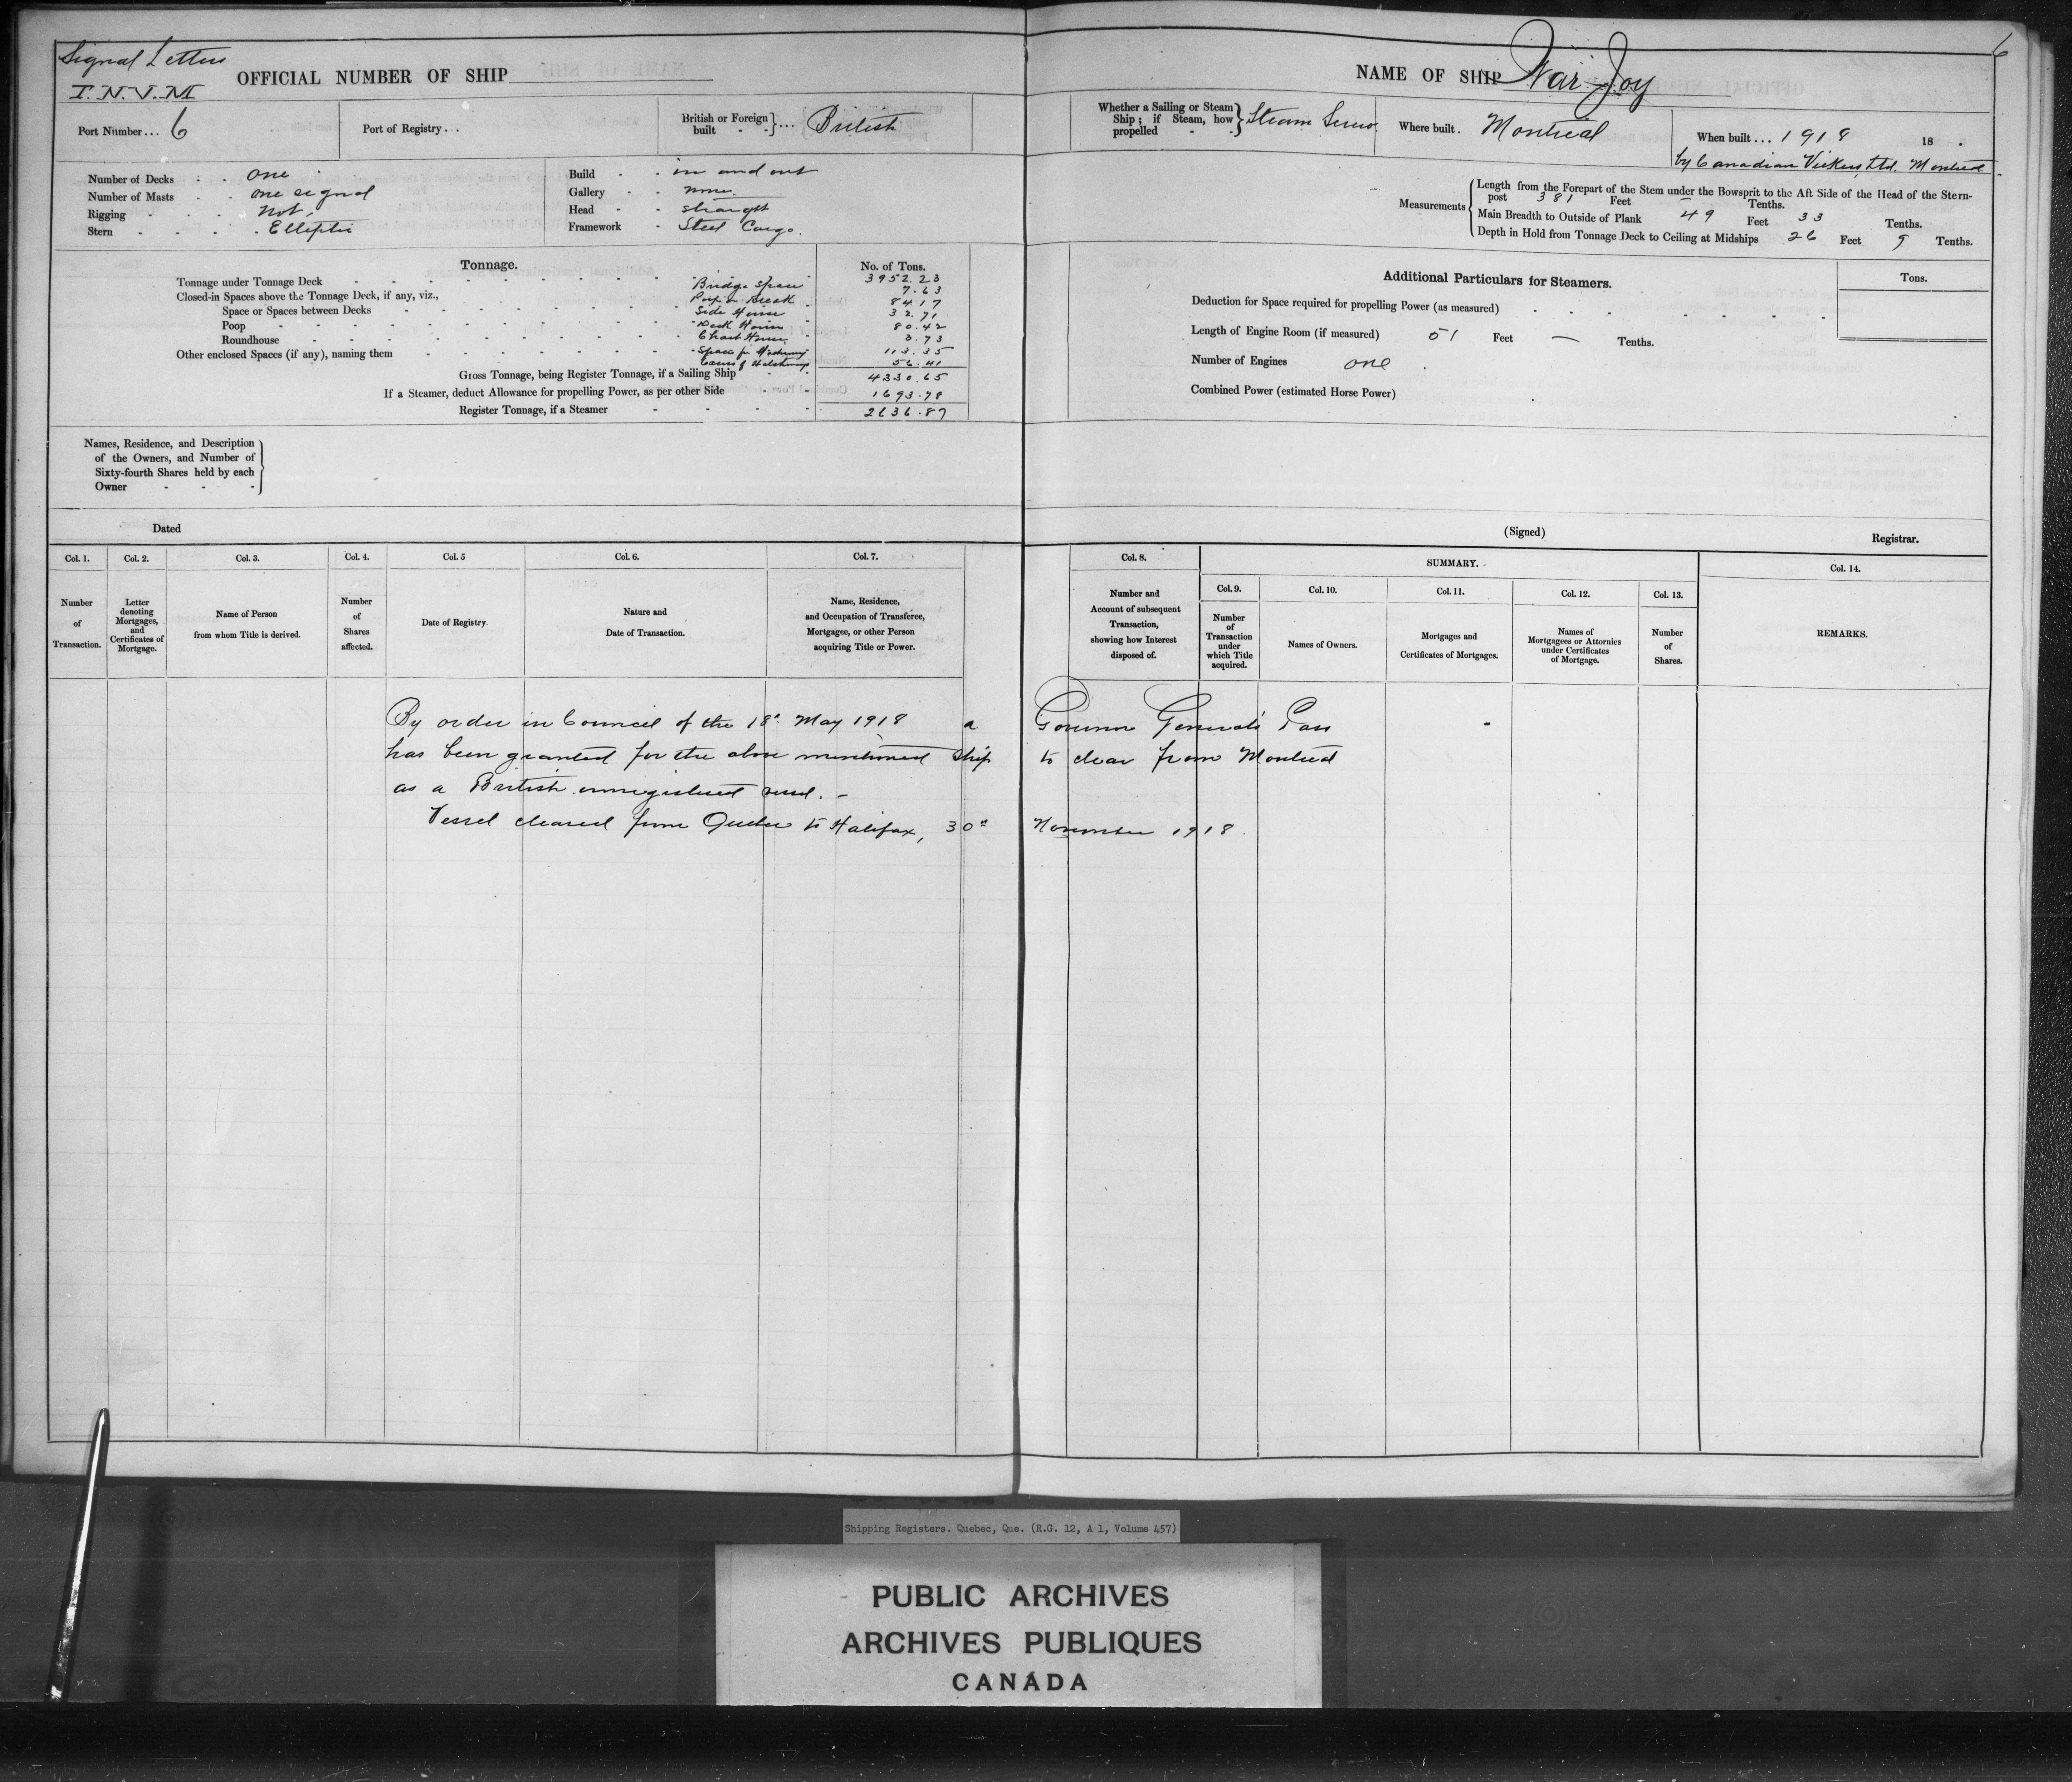 Signal Letters
OFFICIAL NUMBER OF SHIP
Port Number... 6
Port of Registry...
British or Foreign built ... British
Number of Decks - - one
Number of Masts - - one signal
Rigging - - - not
Stern - - - - Elliptic
Build - - in and out
Gallery - - none
Head - - straight
Framework - Steel Cargo.
Tonnage.
No. of Tons.
Tonnage under Tonnage Deck 3952.23
Closed-in Spaces above the Tonnage Deck, if any, viz., Bridge Space 7.63
Space or Spaces between Decks Break 84.17
Poop Side House 32.71
Roundhouse Deck House 80.42
Chart House 3.73
Other enclosed Spaces (if any), naming them Space for Machinery 113.35
Excess of Hatchways 56.41
Gross Tonnage, being Register Tonnage, if a Sailing Ship 4330.65
If a Steamer, deduct Allowance for propelling Power, as per other Side 1693.78
Register Tonnage, if a Steamer 2636.87
Names, Residence, and Description
of the Owners, and Number of
Sixty-fourth Shares held by each
Owner
Dated
Col. 1. Col. 2. Col. 3. Col. 4. Col. 5 Col. 6. Col. 7.
Number of Transaction.
Letter denoting Mortgages, and Certificates of Mortgage.
Name of Person from whom Title is derived.
Number of Shares affected.
Date of Registry.
Nature and Date of Transaction.
Name, Residence, and Occupation of Transferee, Mortgagee, or other Person acquiring Title or Power.
NAME OF SHIP War Joy
6
Whether a Sailing or Steam Ship; if Steam, how propelled - - Steam Screw
Where built. Montreal
When built... 1918 18 .
by Canadian Vickers Ltd. Montreal
Measurements
Length from the Forepart of the Stem under the Bowsprit to the Aft Side of the Head of the Stern-
post 381 Feet — Tenths.
Main Breadth to Outside of Plank 49 Feet 33 Tenths.
Depth in Hold from Tonnage Deck to Ceiling at Midships 26 Feet 9 Tenths.
Additional Particulars for Steamers.
Tons.
Deduction for Space required for propelling Power (as measured)
Length of Engine Room (if measured) 51 Feet — Tenths.
Number of Engines one
Combined Power (estimated Horse Power)
(Signed)
Registrar.
Col. 8.
SUMMARY.
Col. 14.
Col. 9. Col. 10. Col. 11. Col. 12. Col. 13.
Number and Account of subsequent Transaction, showing how Interest disposed of.
Number of Transaction under which Title acquired.
Names of Owners.
Mortgages and Certificates of Mortgages.
Names of Mortgagees or Attornies under Certificates of Mortgage.
Number of Shares.
REMARKS.
By order in Council of the 18th May 1918 a Governor General's Pass
has been granted for the above mentioned ship to clear from Montreal
as a British unregistered vessel. -
Vessel cleared from Quebec to Halifax, 30th November 1918.
Shipping Registers. Quebec, Que. (R.G. 12, A 1, Volume 457)
PUBLIC ARCHIVES
ARCHIVES PUBLIQUES
CANADA